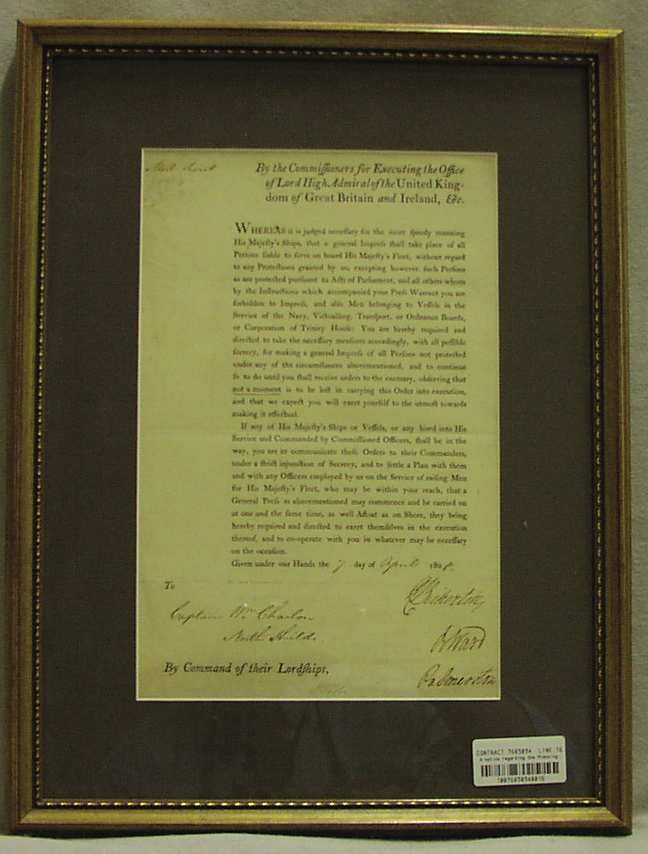 Most Secret
By the Commissioners for Executing the Office
of Lord High Admiral of the United King-
dom of Great Britain and Ireland, &c.
WHEREAS it is judged necessary for the more speedy manning
His Majesty's Ships, that a general Impress shall take place of all
Persons liable to serve on board His Majesty's Fleet, without regard
to any Protections granted by us, excepting however such Persons
as are protected pursuant to Acts of Parliament, and all others whom
by the Instructions which accompanied your Press Warrant you are
forbidden to Impress, and also Men belonging to Vessels in the
Service of the Navy, Victualling, Transport, or Ordnance Boards,
or Corporation of Trinity House: You are hereby required and
directed to take the necessary measures accordingly, with all possible
secrecy, for making a general Impress of all Persons not protected
under any of the circumstances abovementioned, and to continue
so to do until you shall receive orders to the contrary, observing that
not a moment is to be lost in carrying this Order into execution,
and that we expect you will exert yourself to the utmost towards
making it effectual.
If any of His Majesty's Ships or Vessels, or any hired into His
Service and Commanded by Commissioned Officers, shall be in the
way, you are to communicate these Orders to their Commanders,
under a strict injunction of Secrecy, and to settle a Plan with them
and with any Officers employed by us on the Service of raising Men
for His Majesty's Fleet, who may be within your reach, that a
General Press as abovementioned may commence and be carried on
at one and the same time, as well Afloat as on Shore, they being
hereby required and directed to exert themselves in the execution
thereof, and to co-operate with you in whatever may be necessary
on the occasion.
Given under our Hands the 7 day of April 180
To
Captain Wm Charlton
North Shields
By Command of their Lordships,
Bickerton
R Ward
Palmerston
CONTRACT LINE 16
A notice regarding the Pressing